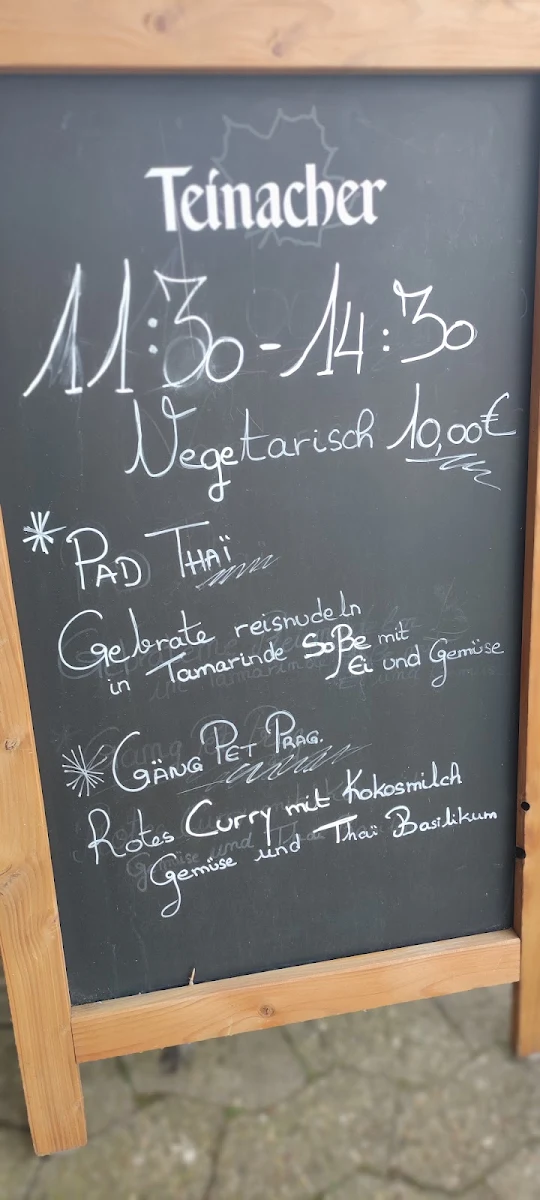 Teinacher
11:30-14:30
Vegetarisch 10,00€
* PAD THAÏ
Gebrate reisnudeln
in Tamarinde Soße mit
Ei und Gemüse
* GÄNG PET PRAG.
Rotes Curry mit Kokosmilch
Gemüse und Thaï Basilikum